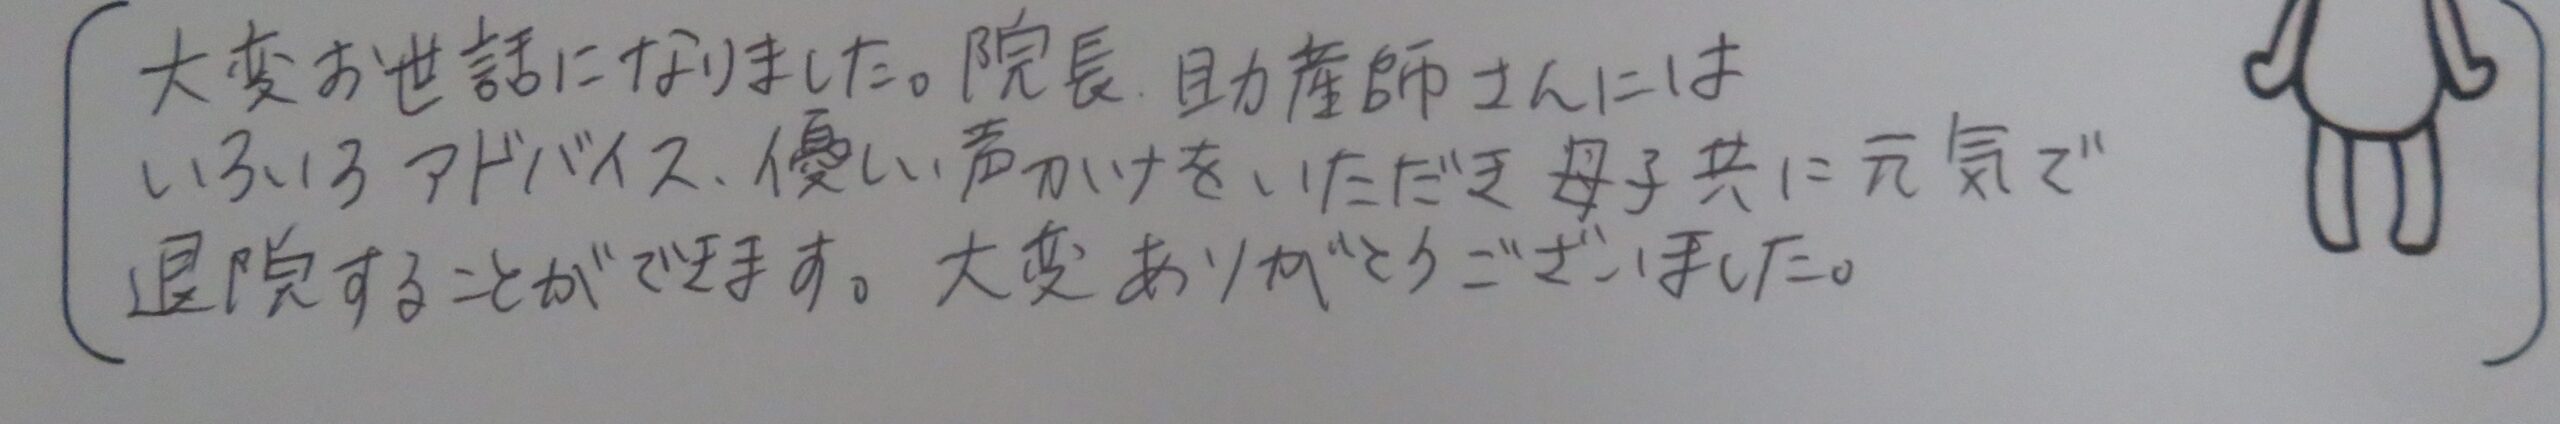 大変お世話になりました。院長、助産師さんには
いろいろアドバイス、優しい声かけをいただき母子共に元気で
退院することができます。大変ありがとうございました。